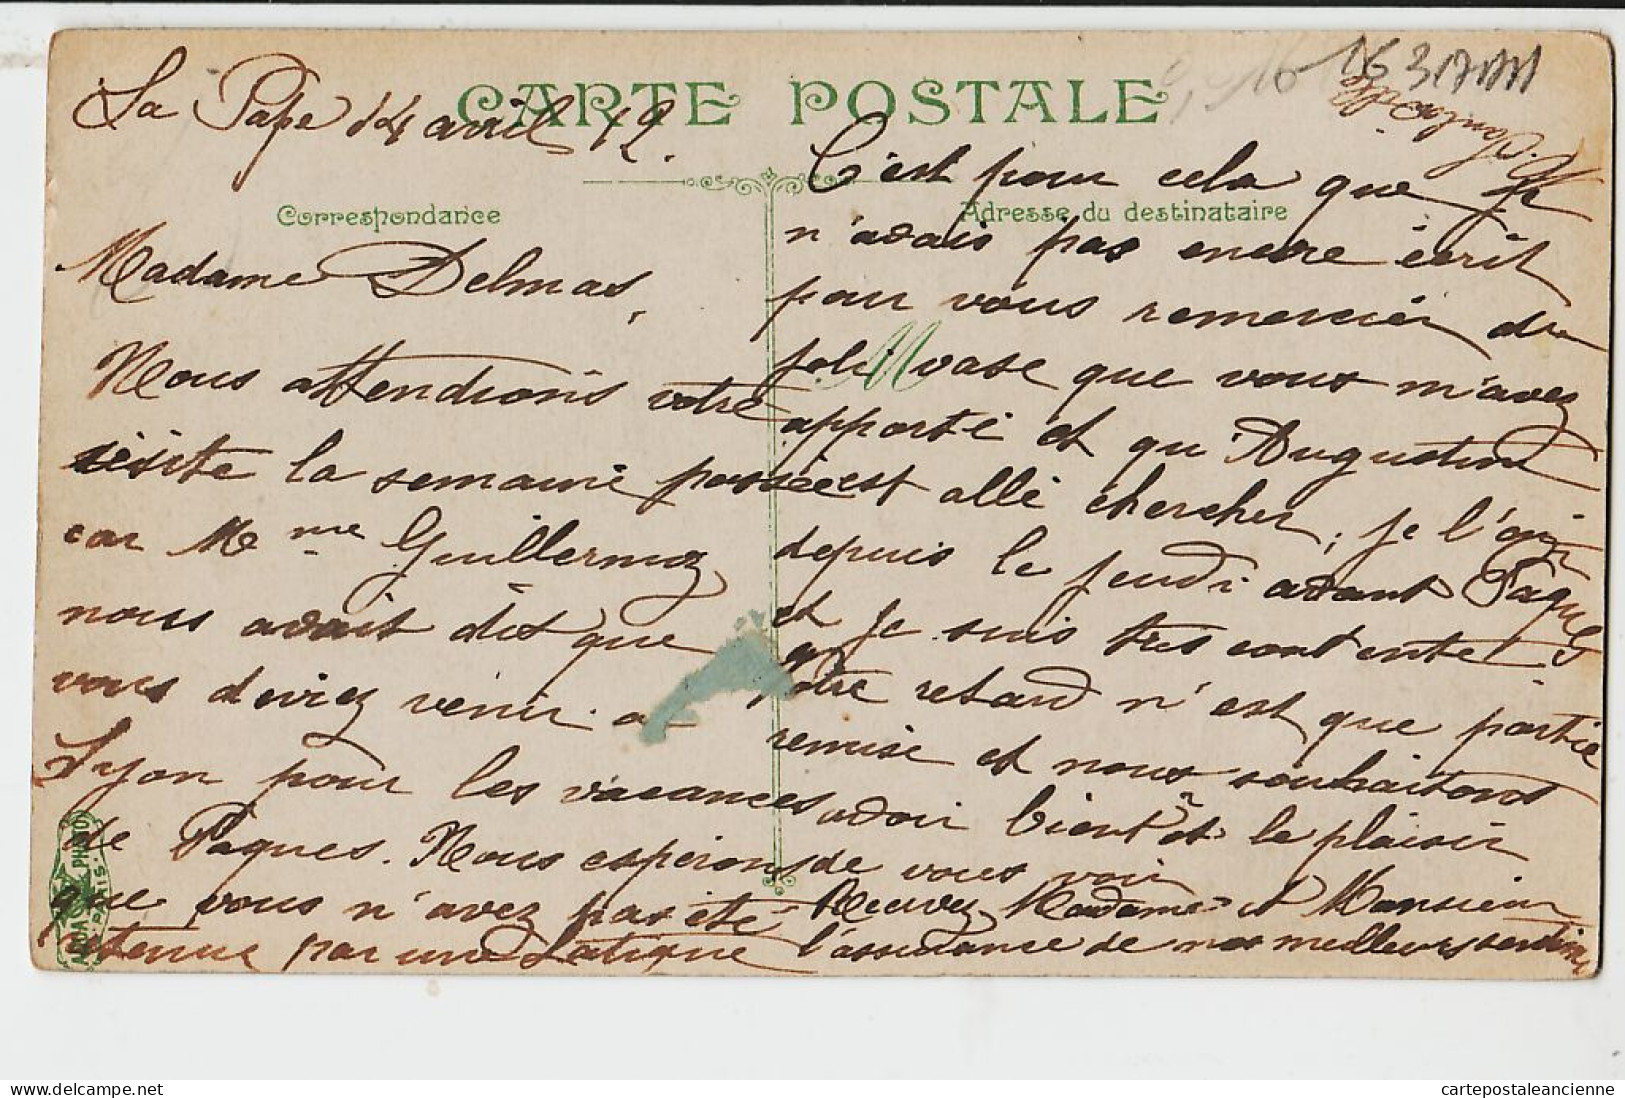 CARTE POSTALE
La Pape 14 avril 12.
Correspondance
Madame Delmas,
Nous attendions votre
visite la semaine passée
car Mme Guillermoz
nous avait dit que
vous deviez venir à
Lyon pour les vacances
de Pâques. Nous espérons
que vous n'avez pas été
retenue par une fatigue
Adresse du destinataire
C'est pour cela que je
n'avais pas encore écrit
pour vous remercier du
joli vase que vous m'avez
apporté et qu'Augustine
est allé chercher, je l'ai
depuis le jeudi avant Pâques
et je suis très contente.
Votre retard n'est que partie
remise et nous souhaitons
avoir bientôt le plaisir
de vous voir
Recevez Madame et Monsieur
l'assurance de nos meilleurs sentim
PHOTO
PARIS
cartepostale-ancienne.com
cartepostaleancienne